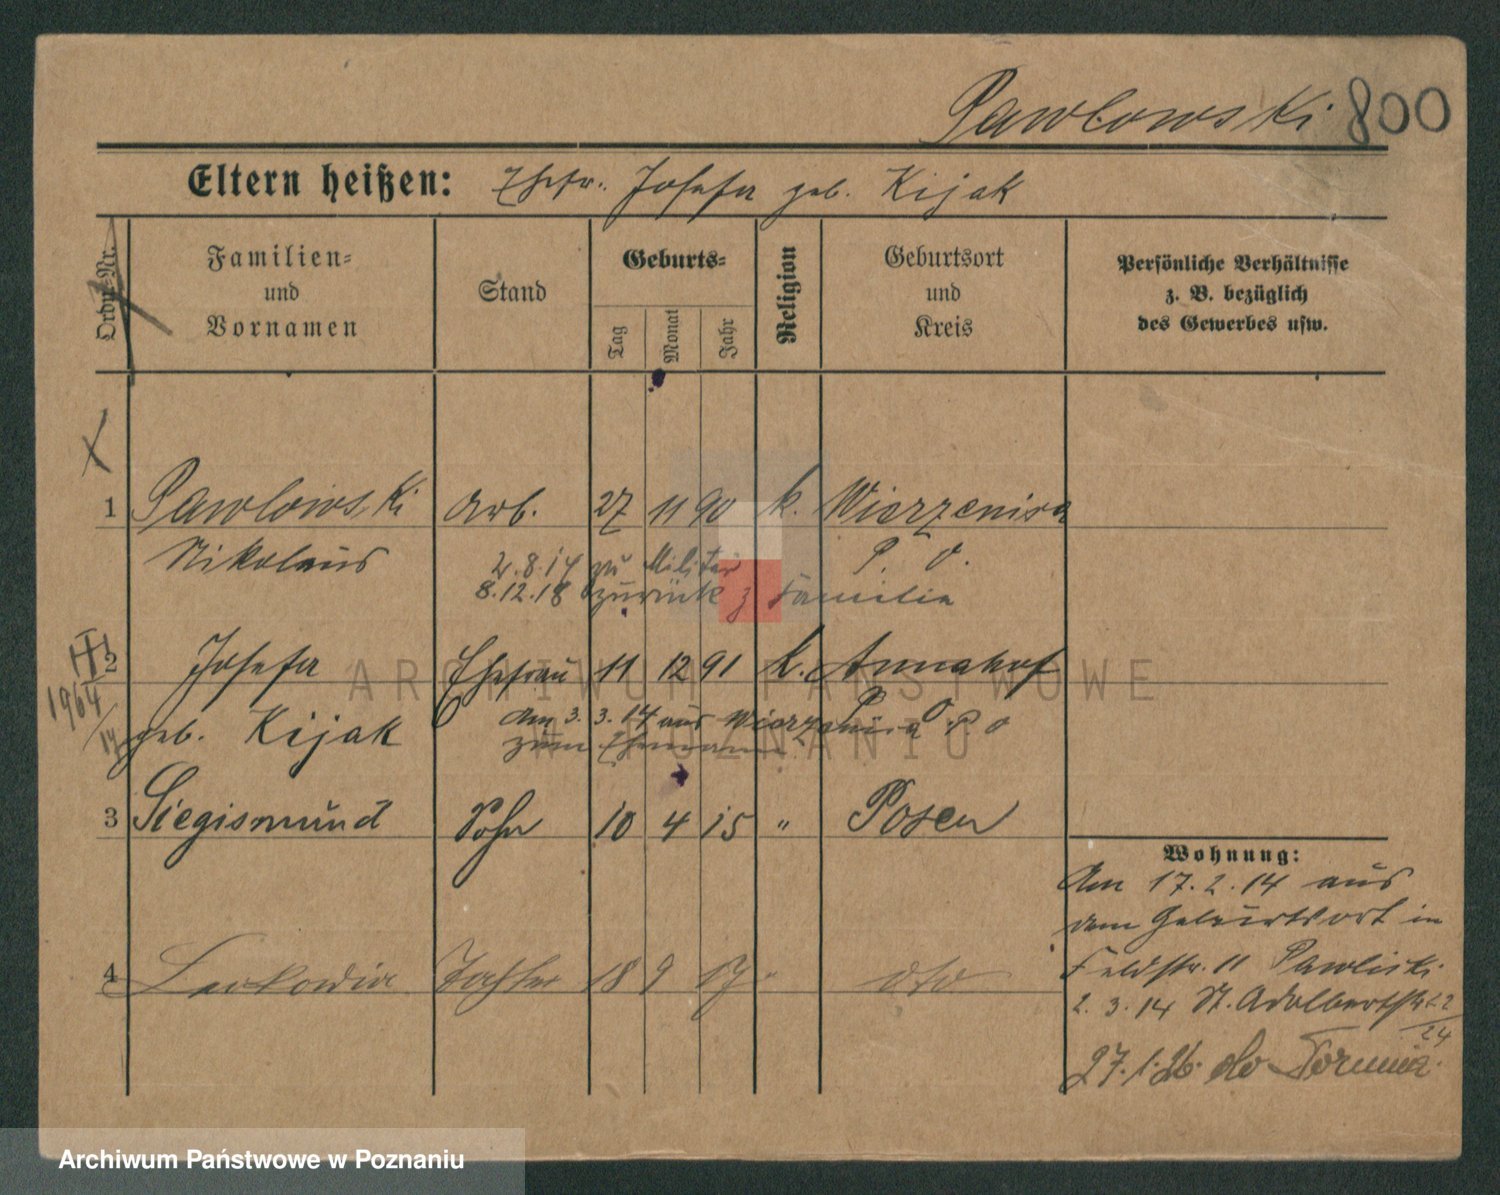 Pawlowski 800
Eltern heißen: Ehefr. Josefa geb. Kijak
Ordn.-Nr.
Familien-
und
Vornamen
Stand
Geburts-
Tag
Monat
Jahr
Religion
Geburtsort
und
Kreis
Persönliche Verhältnisse
z. B. bezüglich
des Gewerbes usw.
1 Pawlowski Arb. 27 11 90 k. Wierzenica
Nikolaus P. O.
2.8.14 zu Militär
8.12.18 zurück z Familie
2 Josefa Ehefrau 11 12 91 k. Annahof
1964/14
geb. Kijak P. O.
Am 3.3.14 aus Wierzenica P. O
zum Ehemann
3 Siegismund Sohn 10 4 15 " Posen
4 Leokadia Tochter 18 9 17 " dto
Wohnung:
Am 17.2.14 aus
dem Geburtsort in
Feldstr. 11 Pawlicki
2.3.14 St. Adalbertstr 22/24
27.1.26. do Torunia.
ARCHIWUM PAŃSTWOWE
W POZNANIU
Archiwum Państwowe w Poznaniu